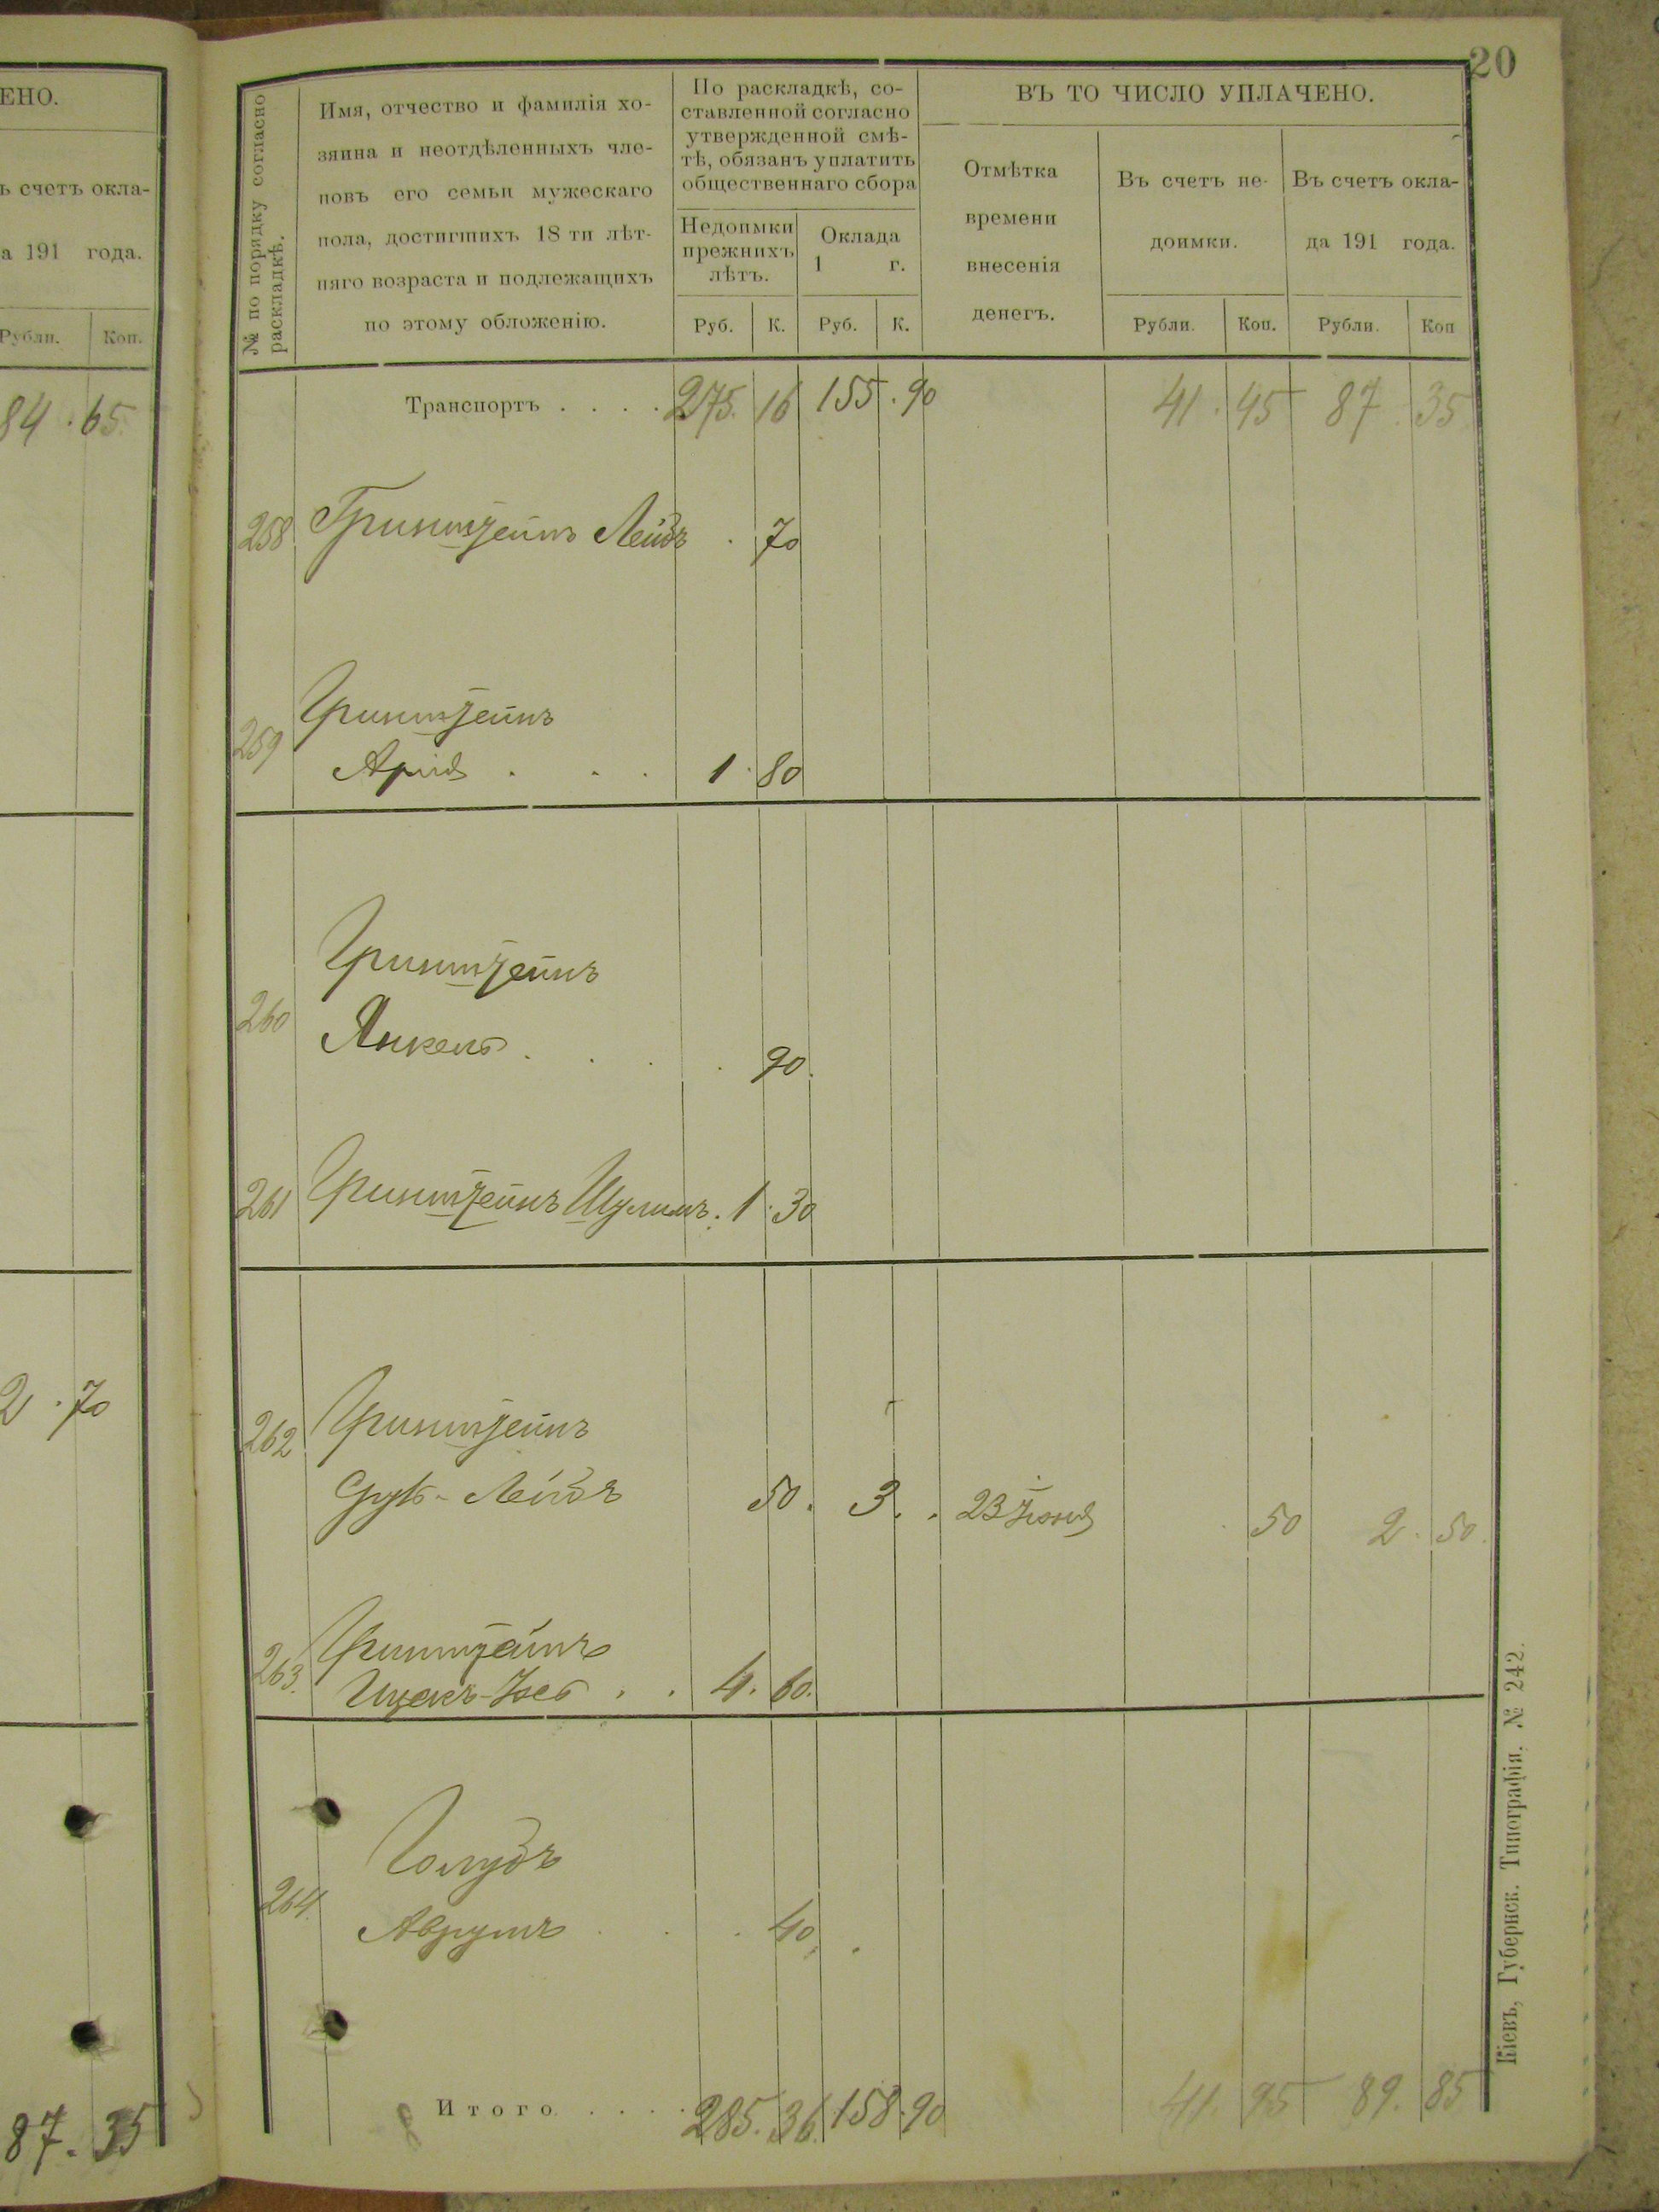 ЕНО.
ъ счетъ окла-
а 191 года.
Рубли. Коп.
84 . 65.
2 . 70
87 . 35
20
№ по порядку согласно
раскладкѣ.
Имя, отчество и фамилія хо-
зяина и неотдѣленныхъ чле-
новъ его семьи мужескаго
пола, достигшихъ 18 ти лѣт-
няго возраста и подлежащихъ
по этому обложенію.
По раскладкѣ, со-
ставленной согласно
утвержденной смѣ-
тѣ, обязанъ уплатить
общественнаго сбора
Недоимки
прежнихъ
лѣтъ.
Оклада
1 г.
Руб. К. Руб. К.
ВЪ ТО ЧИСЛО УПЛАЧЕНО.
Отмѣтка
времени
внесенія
денегъ.
Въ счетъ не-
доимки.
Въ счетъ окла-
да 191 года.
Рубли. Коп. Рубли. Коп
Транспортъ . . . . 275. 16 155 . 90 41 . 45 87 . 35
258 Гринштейнъ Лейбъ . 70
Гринштейнъ
259 Арія . . . 1 . 80
Гринштейнъ
260 Янкель . . . . 90.
261 Гринштейнъ Шулимъ . 1 . 30
262 Гринштейнъ
Сруль-Лейбъ 50 . 3 . . 23 Іюня . 50 2 . 50.
263. Гринштейнъ
Ицекъ-Іось . . 4. 60.
Голубъ
264. Аврумъ . . . 40. .
Итого . . . . 285. 36. 158.90 41. 95 89. 85
Кіевъ, Губернск. Типографія. № 242.